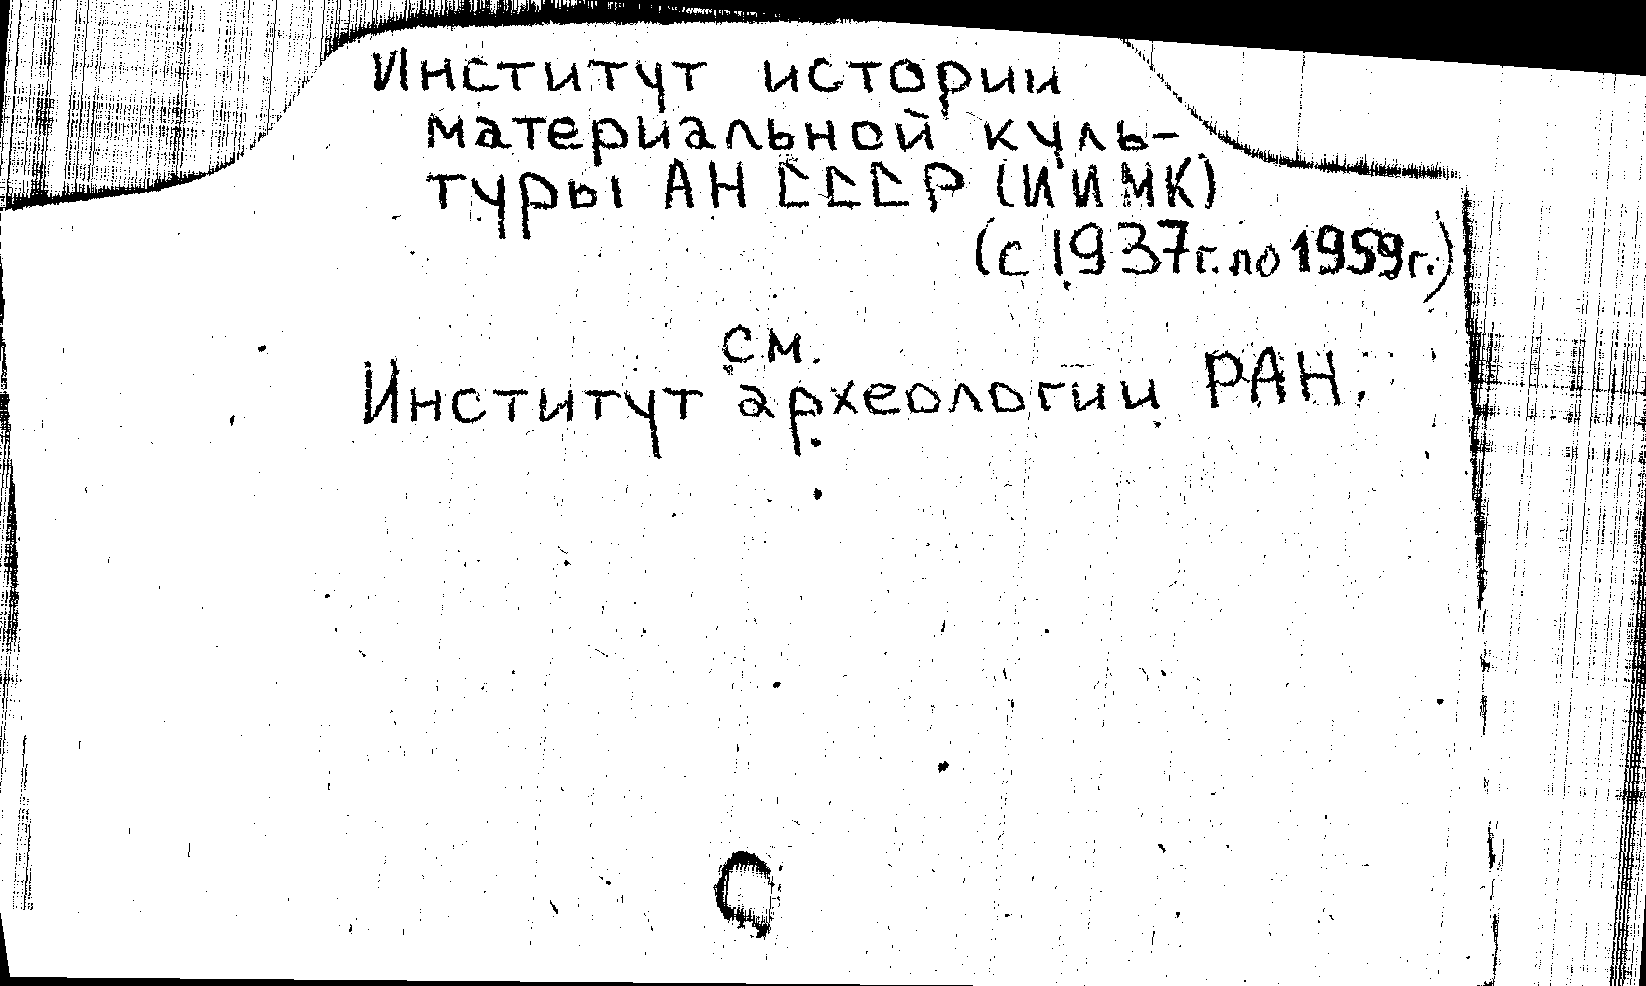 Институт истории
материальной куль-
туры АН СССР (ИИМК)
(с 1937г. по 1959г.)
см.
Институт археологии РАН.